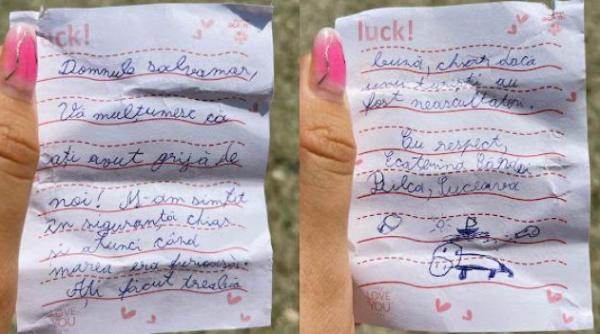 luck!
Domnule salvamar,
Vă mulțumesc că
ați avut grijă de
noi! M-am simțit
în siguranță chiar
și atunci când
marea era furioasă.
Ați făcut treabă
LOVE
YOU
luck!
bună, chiar dacă
unii turiști au
fost neascultători.
Cu respect,
Ecaterina
Pulca, Suceava
LOVE
YOU